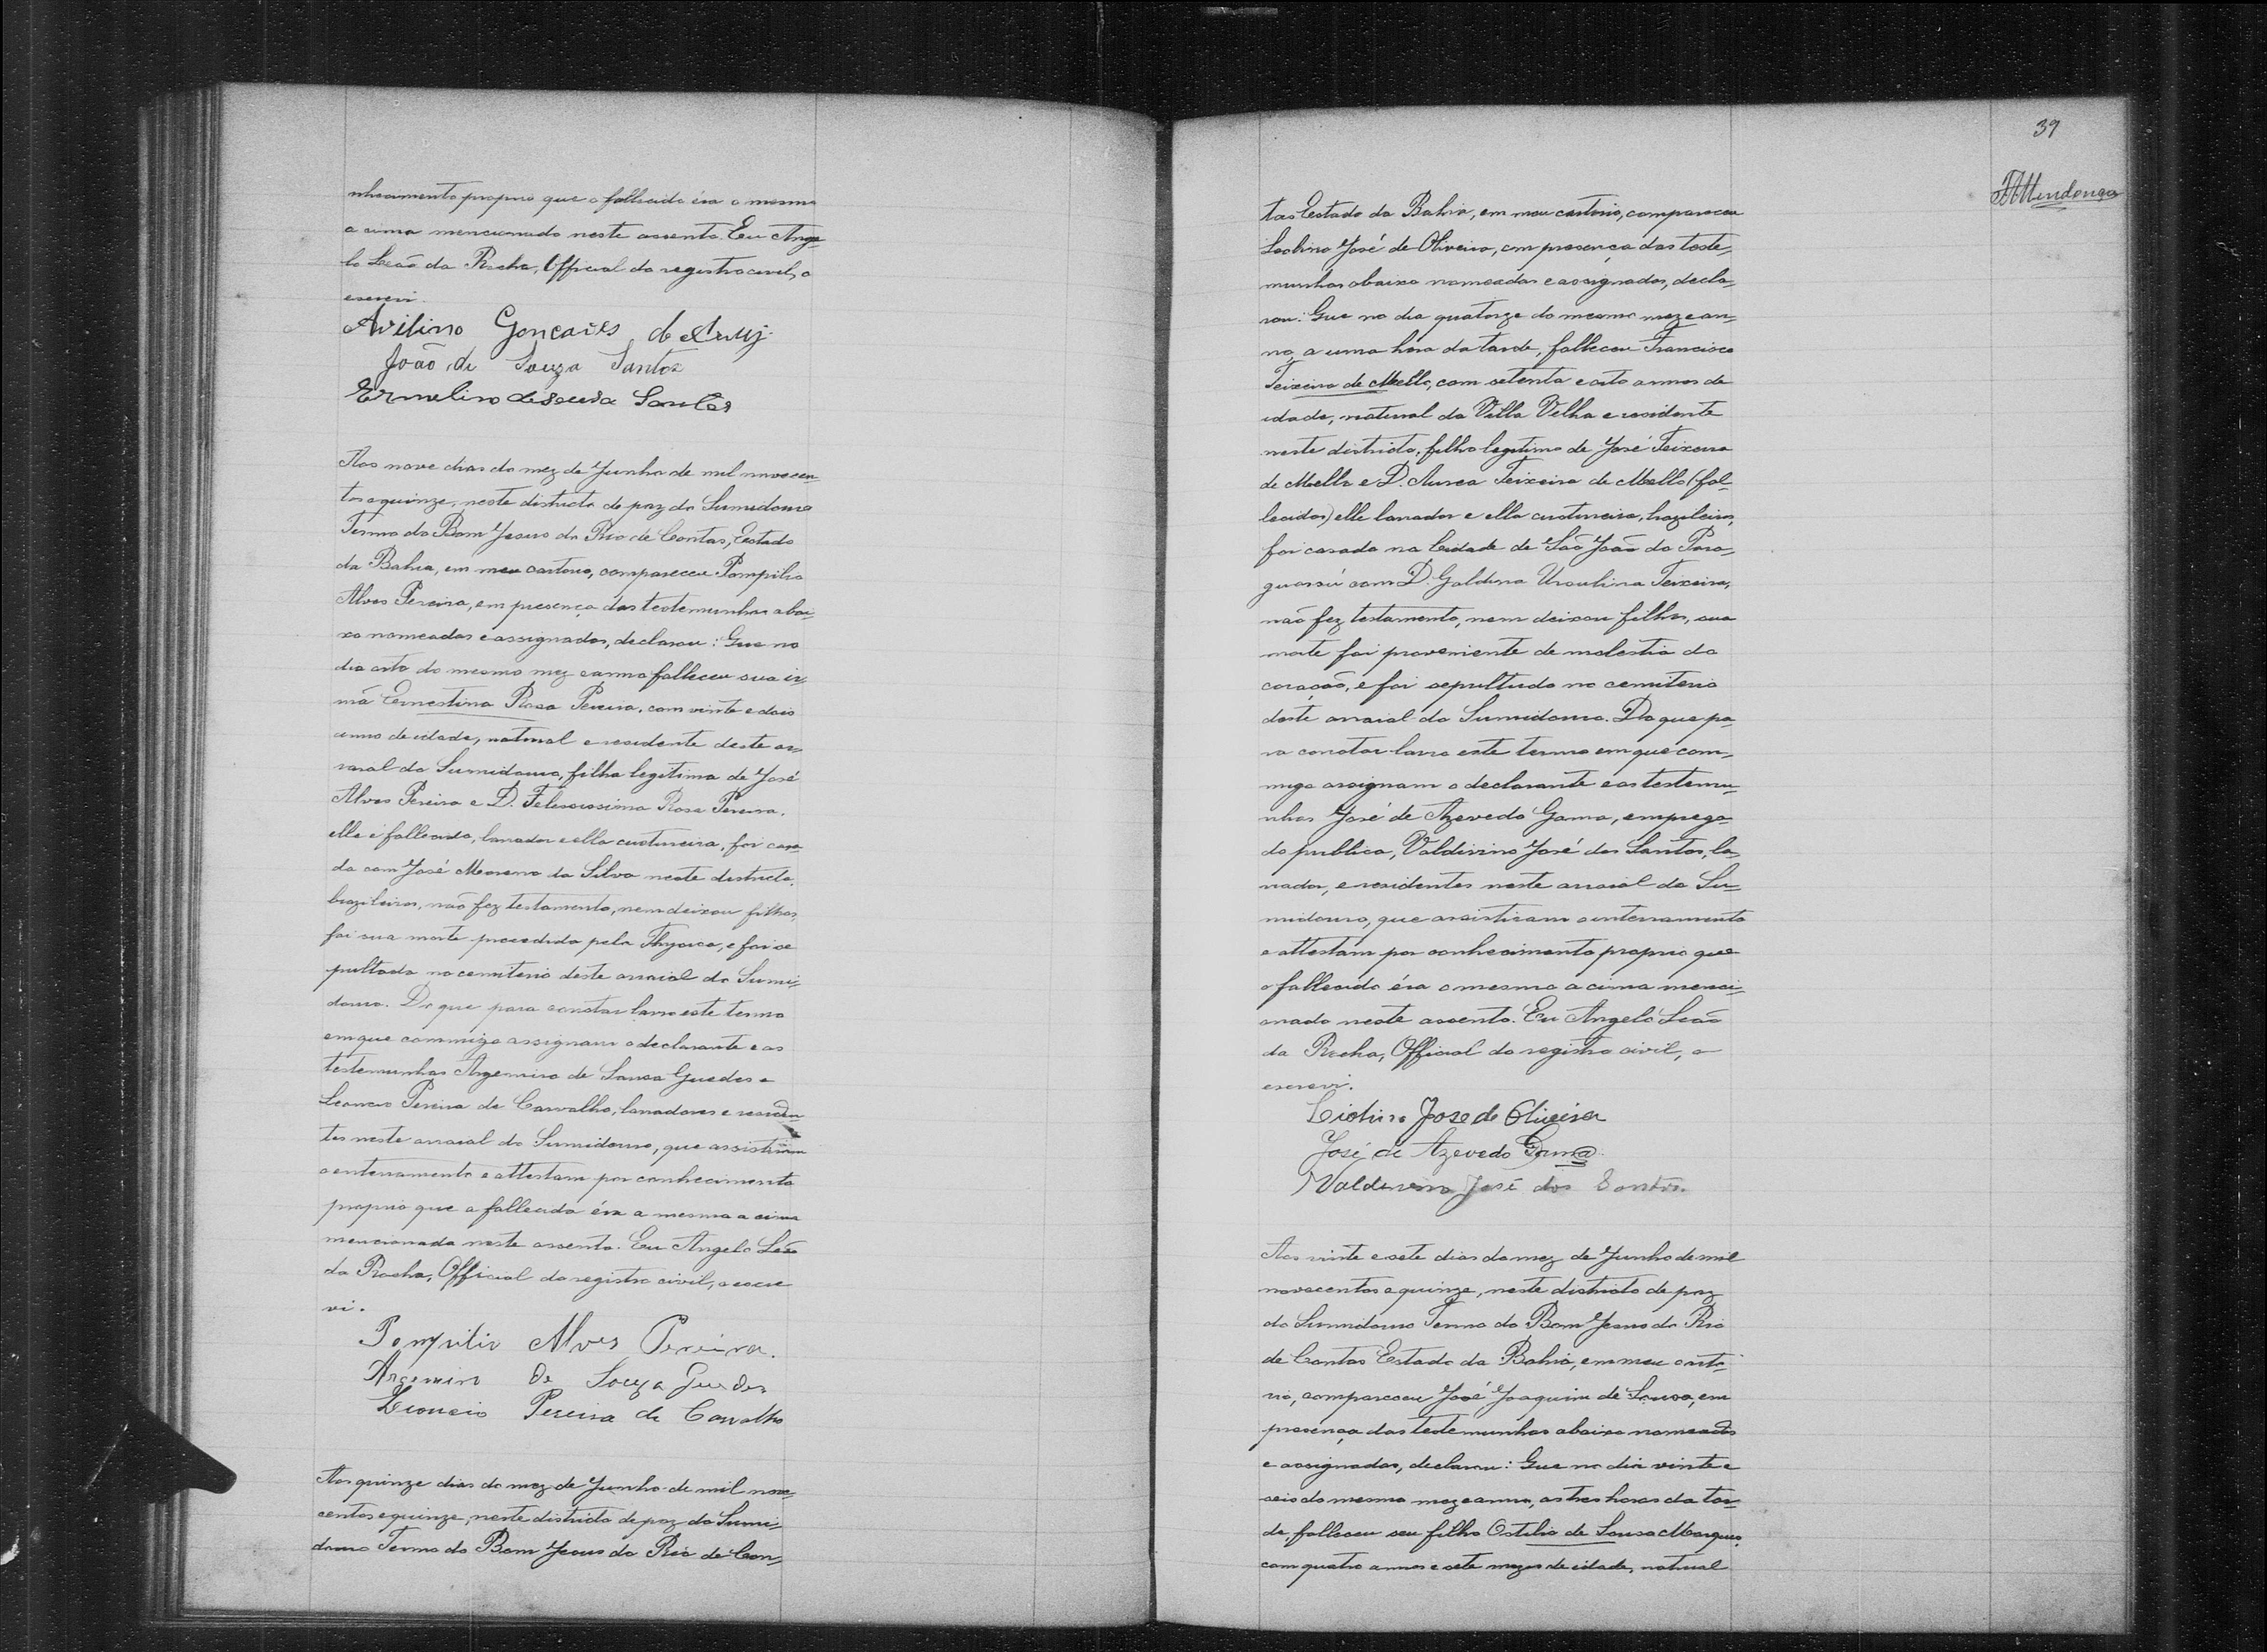 nhecimento proprio que o fallecido éra o mesmo
a cima mencionado neste assento. Eu Ange-
lo Leão da Rocha, Official do registro civil, o
escrevi.
Avilino Gonçalves de
João de Souza Santos
Ermelino de souza Santos
Aos nove dias do mez de Junho de mil novecen-
tos e quinze, neste districto de paz do Sumidouro
Termo do Bom Jesus do Rio de Contas, Estado
da Bahia, em meu cartorio, compareceu Pompilio
Alves Pereira, em presença das testemunhas abai-
xo nomeadas e assignadas, declarou: Que no
dia oito do mesmo mez e anno falleceu sua ir-
mã Ernestina Rosa Pereira, com vinte e dois
annos de idade, natural e residente deste ar-
raial do Sumidouro, filha legitima de José
Alves Pereira e D. Felescissima Rosa Pereira,
elle é fallecido, lavrador e ella custureira, foi casa-
da com José Moreno da Silva neste districto,
brazileiros, não fez testamento, nem deixou filhos,
foi sua morte procedida pela Thysica, e foi se
pultada no cemiterio deste arraial do Sumi-
douro. Do que para constar lavro este termo
em que commigo assignam o declarante e as
testemunhas Argemiro de Sousa Guedes e
Leoncio Pereira de Carvalho, lavradores e residen-
tes neste arraial do Sumidouro, que assistiram
o enterramento e attestam por conhecimento
proprio que a fallecida éra a mesma a cima
mencionada neste assento. Eu Angelo Leão
da Rocha, Official do registro civil, o escre
vi.
Pompilio Alves Pereira.
Argemiro de Souza Guedes
Leoncio Pereira de Carvalho
Aos quinze dias do mez de Junho de mil nove-
centos e quinze, neste districto de paz do Sumi-
douro Termo do Bom Jesus do Rio de Con-
39
Mendonça
tas Estado da Bahia, em meu cartorio, compareceu
José de Oliveira, em presença das teste-
munhas abaixo nomeadas e assignadas, decla-
rou: Que no dia quatorze do mesmo mez e an-
no, a uma hora da tarde, falleceu Francisco
Teixeira de Mello, com setenta e oito annos de
idade, natural da Villa Velha e residente
neste districto, filho legitimo de José Teixeira
de Mello e D. Aurea Teixeira de Mello (fal-
lecidos) elle lavrador e ella custureira, brazileiros,
foi casado na Cidade de São João do Para-
guassú com D. Galdina Ursulina Teixeira,
não fez testamento, nem deixou filhos, sua
morte foi proveniente de molestia do
coração, e foi sepultado no cemiterio
deste arraial do Sumidouro. Do que pa-
ra constar lavro este termo em que com-
migo assignam o declarante e as testemu-
nhas José de Azevedo Gama, emprega-
do publico, Valdivino José dos Santos, la-
vrador, e residentes neste arraial do Su-
midouro, que assistiram o enterramento
e attestam por conhecimento proprio que
o fallecido éra o mesmo a cima menci-
onado neste assento. Eu Angelo Leão
da Rocha, Official do registro civil, o
escrevi.
José de Oliveira
José de Azevedo Gama
José dos Santos.
Aos vinte e sete dias do mez de Junho de mil
novecentos e quinze, neste districto de paz
do Sumidouro Termo do Bom Jesus do Rio
de Contas Estado da Bahia, em meu carto-
rio, compareceu José Joaquim de Sousa, em
presença das testemunhas abaixo nomeadas
e assignadas, declarou: Que no dia vinte e
seis do mesmo mez e anno, as tres horas da tar-
de, falleceu seu filho Ostelio de Sousa Marques,
com quatro annos e sete mezes de idade, natural